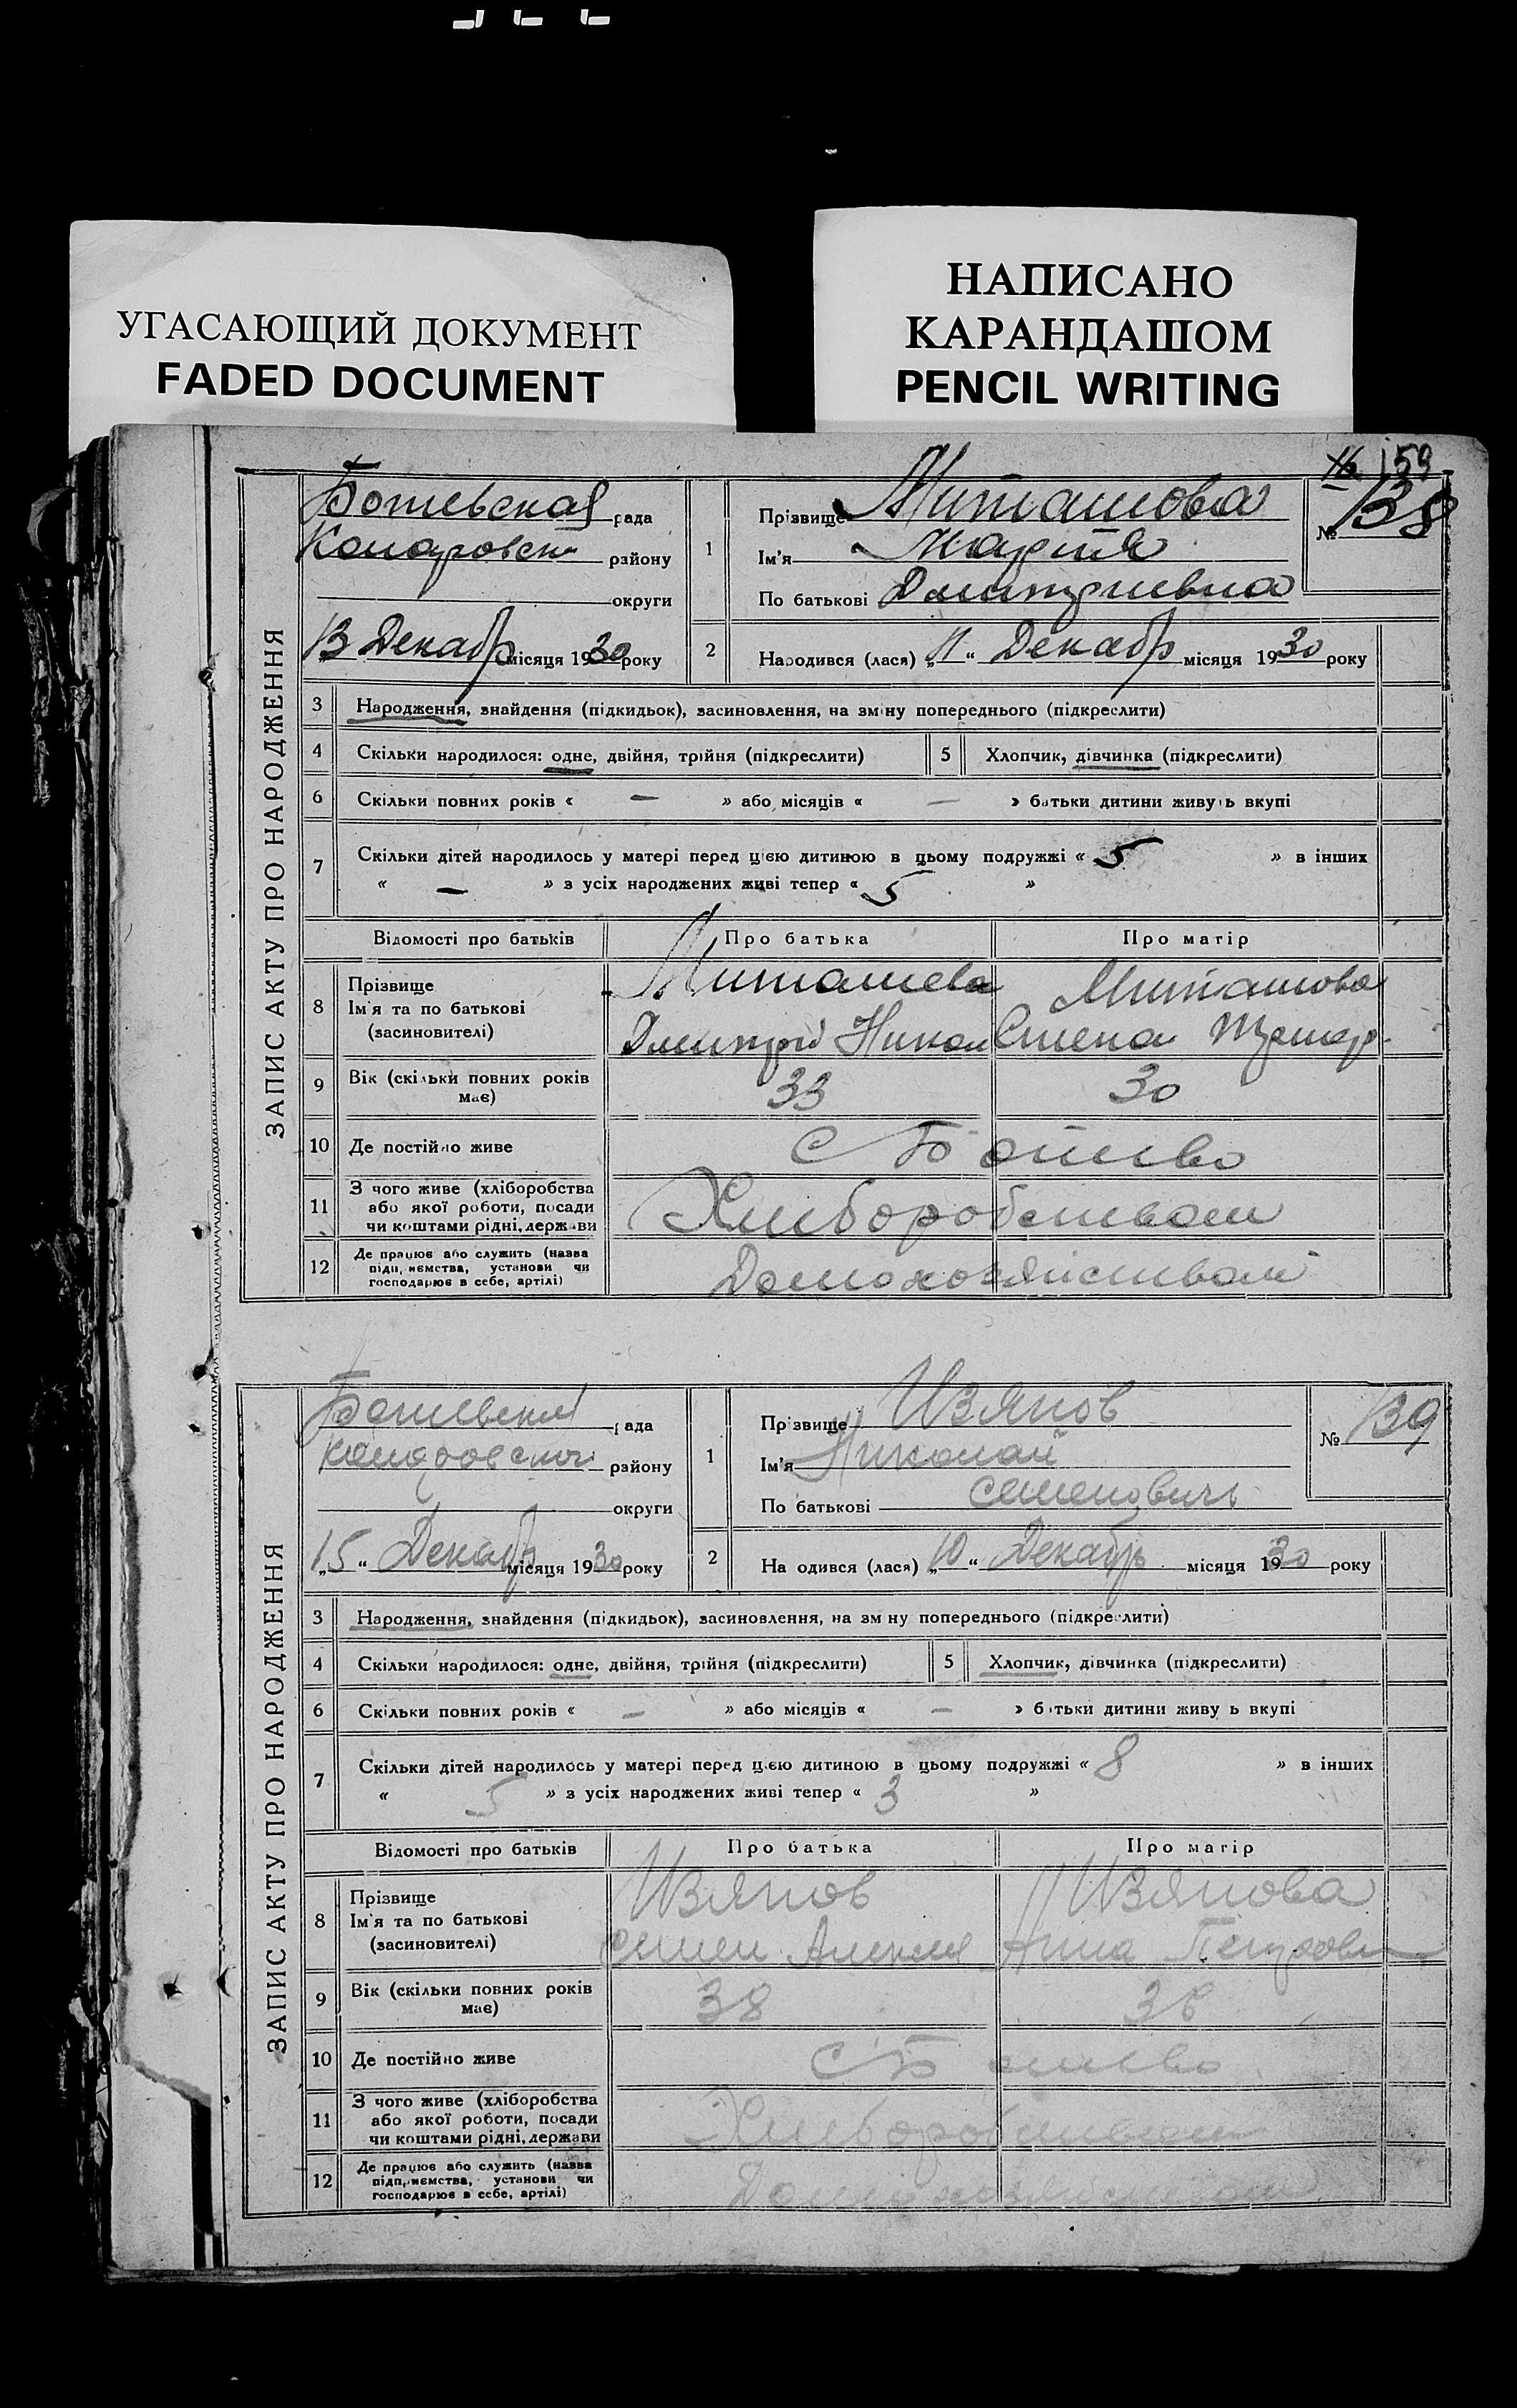 УГАСАЮЩИЙ ДОКУМЕНТ
FADED DOCUMENT
НАПИСАНО
КАРАНДАШОМ
PENCIL WRITING
159
ЗАПИС АКТУ ПРО НАРОДЖЕННЯ
Ботиевская рада
району
округи
13 Декабр місяця 1930 року
1
Прізвище Миташова
Ім'я Мария
По батькові Дмитриевна
№ 138
2
Народився (лася) „11“ Декабр місяця 1930 року
3 Народження, знайдення (підкидьок), засиновлення, на зміну попереднього (підкреслити)
4 Скільки народилося: одне, двійня, трійня (підкреслити) 5 Хлопчик, дівчинка (підкреслити)
6 Скільки повних років « — » або місяців « — » батьки дитини живуть вкупі
7 Скільки дітей народилось у матері перед цією дитиною в цьому подружжі « 5 » в інших
« — » з усіх народжених живі тепер « 5 »
Відомості про батьків Про батька Про матір
8 Прізвище
Ім'я та по батькові
(засиновителі)
Миташева Миташова
Дмитрий Никол
9 Вік (скільки повних років має) 33 30
10 Де постійно живе с Ботиево
11 З чого живе (хліборобства
або якої роботи, посади
чи коштами рідні, держави
Хлиборобством
12 Де працює або служить (назва
підприємства, установи чи
господарює в себе, артілі)
Домохозяйством
ЗАПИС АКТУ ПРО НАРОДЖЕННЯ
рада
району
округи
„15“ Декабр місяця 1930 року
1
Прізвище Извянов
Ім'я Николай
По батькові Семенович
№ 139
2
Народився (лася) „10“ Декабр місяця 1930 року
3 Народження, знайдення (підкидьок), засиновлення, на зміну попереднього (підкреслити)
4 Скільки народилося: одне, двійня, трійня (підкреслити) 5 Хлопчик, дівчинка (підкреслити)
6 Скільки повних років « — » або місяців « — » батьки дитини живуть вкупі
7 Скільки дітей народилось у матері перед цією дитиною в цьому подружжі « 8 » в інших
« 5 » з усіх народжених живі тепер « 3 »
Відомості про батьків Про батька Про матір
8 Прізвище
Ім'я та по батькові
(засиновителі)
Семен Алексея Анна Петровн
9 Вік (скільки повних років має) 38
10 Де постійно живе с Ботиево
11 З чого живе (хліборобства
або якої роботи, посади
чи коштами рідні, держави
Хлиборобством
12 Де працює або служить (назва
підприємства, установи чи
господарює в себе, артілі)